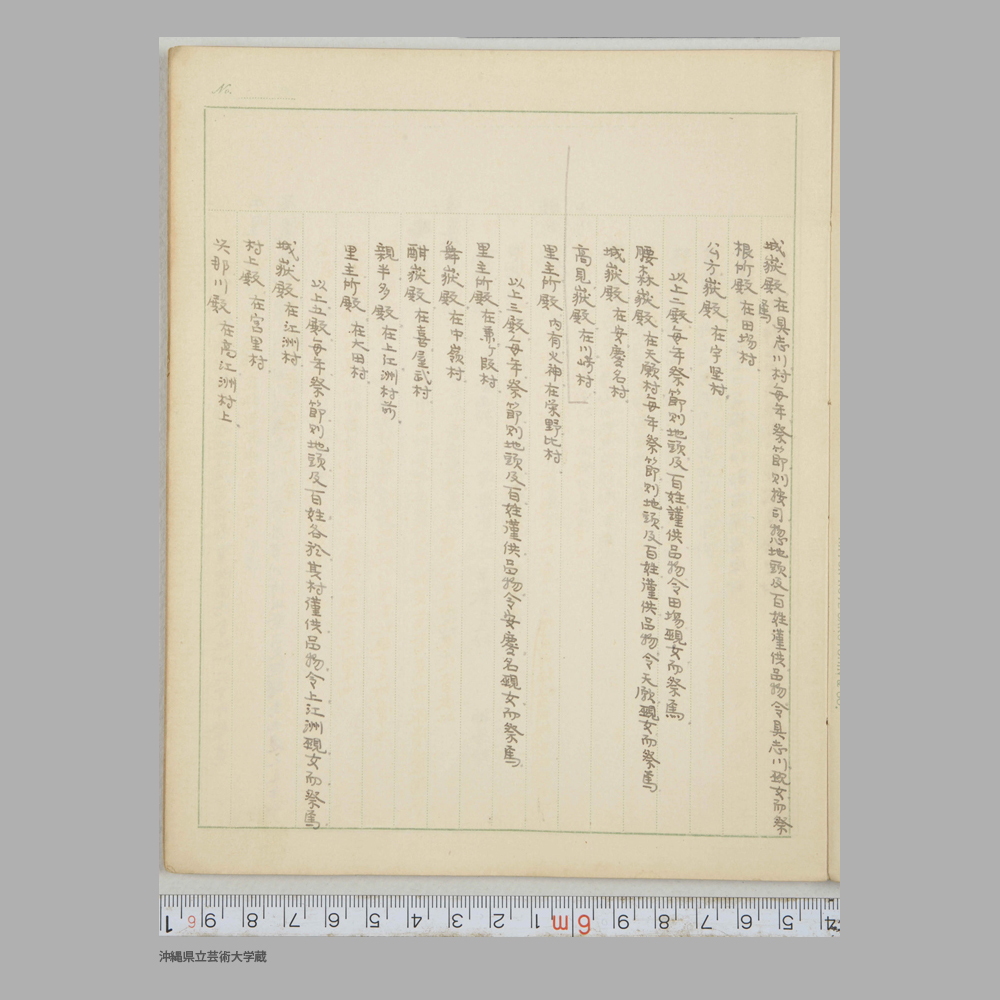 No.
城嶽殿 在具志川村毎年祭節則按司惣地頭及百姓謹供品物令具志川覡女而祭
焉
根所殿 在田場村
公方嶽殿 在宇堅村
以上二殿毎年祭節則地頭及百姓謹供品物令田場覡女而祭焉
腰森嶽殿 在天願村毎年祭節則地頭及百姓謹供品物令天願覡女而祭焉
城嶽殿 在安慶名村
高見嶽殿 在川崎村
里主所殿 内有火神在栄野比村
以上三殿毎年祭節則地頭及百姓謹供品物令安慶名覡女而祭焉
里主所殿 在兼ヶ段村
舞嶽殿 在中嶺村
酣嶽殿 在喜屋武村
親半多殿 在上江洲村前
里主所殿 在大田村
以上五殿毎年祭節則地頭及百姓各於其村謹供品物令上江洲覡女而祭焉
城嶽殿 在江洲村
村上殿 在宮里村
那川殿 在高江洲村上
1 6 9 8 7 6 5 4 3 2 1 6m 9 8 7 6 5 4
沖縄県立芸術大学蔵